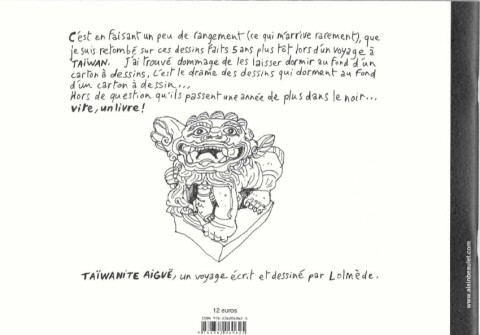 C'est en faisant un peu de rangement (ce qui m'arrive rarement), que
je suis retombé sur ces dessins faits 5 ans plus tôt lors d'un voyage à
TAÏWAN. J'ai trouvé dommage de les laisser dormir au fond d'un
carton à dessins. C'est le drame des dessins qui dorment au fond
d'un carton à dessin...
Hors de question qu'ils passent une année de plus dans le noir...
vite, un livre!
TAÏWANITE AIGUË, un voyage écrit et dessiné par Lolmède.
www.alainbeaulet.com
12 euros